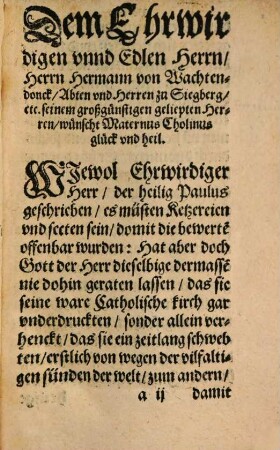 Dem Ehrwir
digen vnnd Edlen Herrn/
Herrn Hermann von Wachten-
donck/ Abten vnd Herren zu Siegberg/
etc. seinem großgünstigen geliepten Her-
ren/ wünscht Maternus Cholinus
glück vnd heil.
WJewol Ehrwirdiger
Herr/ der heilig Paulus
geschrieben/ es müsten Ketzereien
vnd secten sein/ domit die bewertē
offenbar wurden: Hat aber doch
Gott der Herr dieselbige dermassē
nie dohin geraten lassen/ das sie
seine ware Catholische kirch gar
vnderdruckten/ sonder allein ver-
henckt/ das sie ein zeitlang schweb-
ten/ erstlich von wegen der vilfalti-
gen sünden der welt/ zum andern/
a ij damit